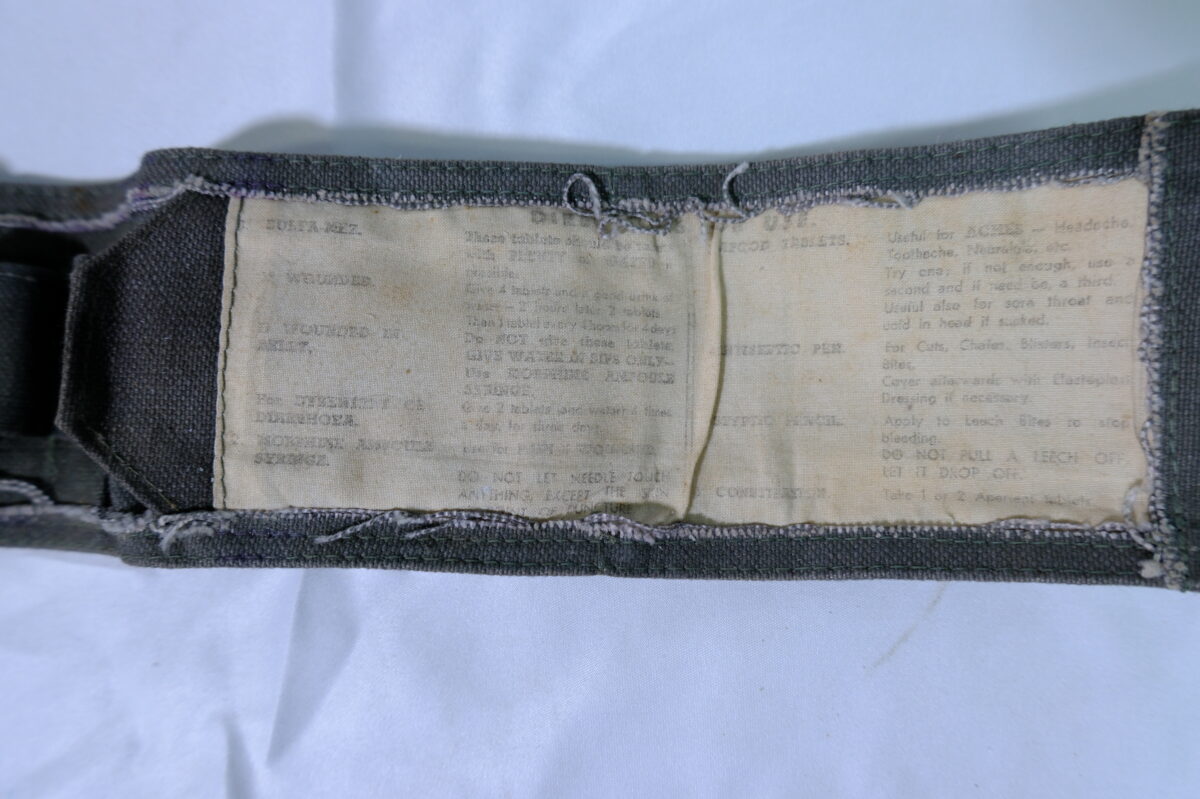 SULFA-MEZ.
These tablets
with PLENTY of WATER,
possible.
WOUNDED.
Give 4 tablets and a good drink of
water – 2 hours later 2 tablets
Then 1 tablet every 4 hours for 4 days
WOUNDED IN
BELLY.
Do NOT give these tablets.
GIVE WATER IN SIPS ONLY—
Use MORPHINE AMPOULE
SYRINGE.
For DYSENTERY OR
DIARRHOEA.
Give 2 tablets (and water) 4 times
a day, for three days.
MORPHINE AMPOULE
SYRINGE.
DO NOT LET NEEDLE TOUCH
ANYTHING EXCEPT THE SKIN
TABLETS.
Useful for ACHES — Headache,
Toothache, Neuralgia, etc.
Try one; if not enough, use a
second and if need be, a third.
Useful also for sore throat and
cold in head if sucked.
ANTISEPTIC PEN.
For Cuts, Chafes, Blisters, Insect
Bites.
Cover afterwards with Elastoplast
Dressing if necessary.
STYPTIC PENCIL.
Apply to Leech Bites to stop
bleeding.
DO NOT PULL A LEECH OFF,
LET IT DROP OFF.
CONSTIPATION.
Take 1 or 2 Aperient tablets